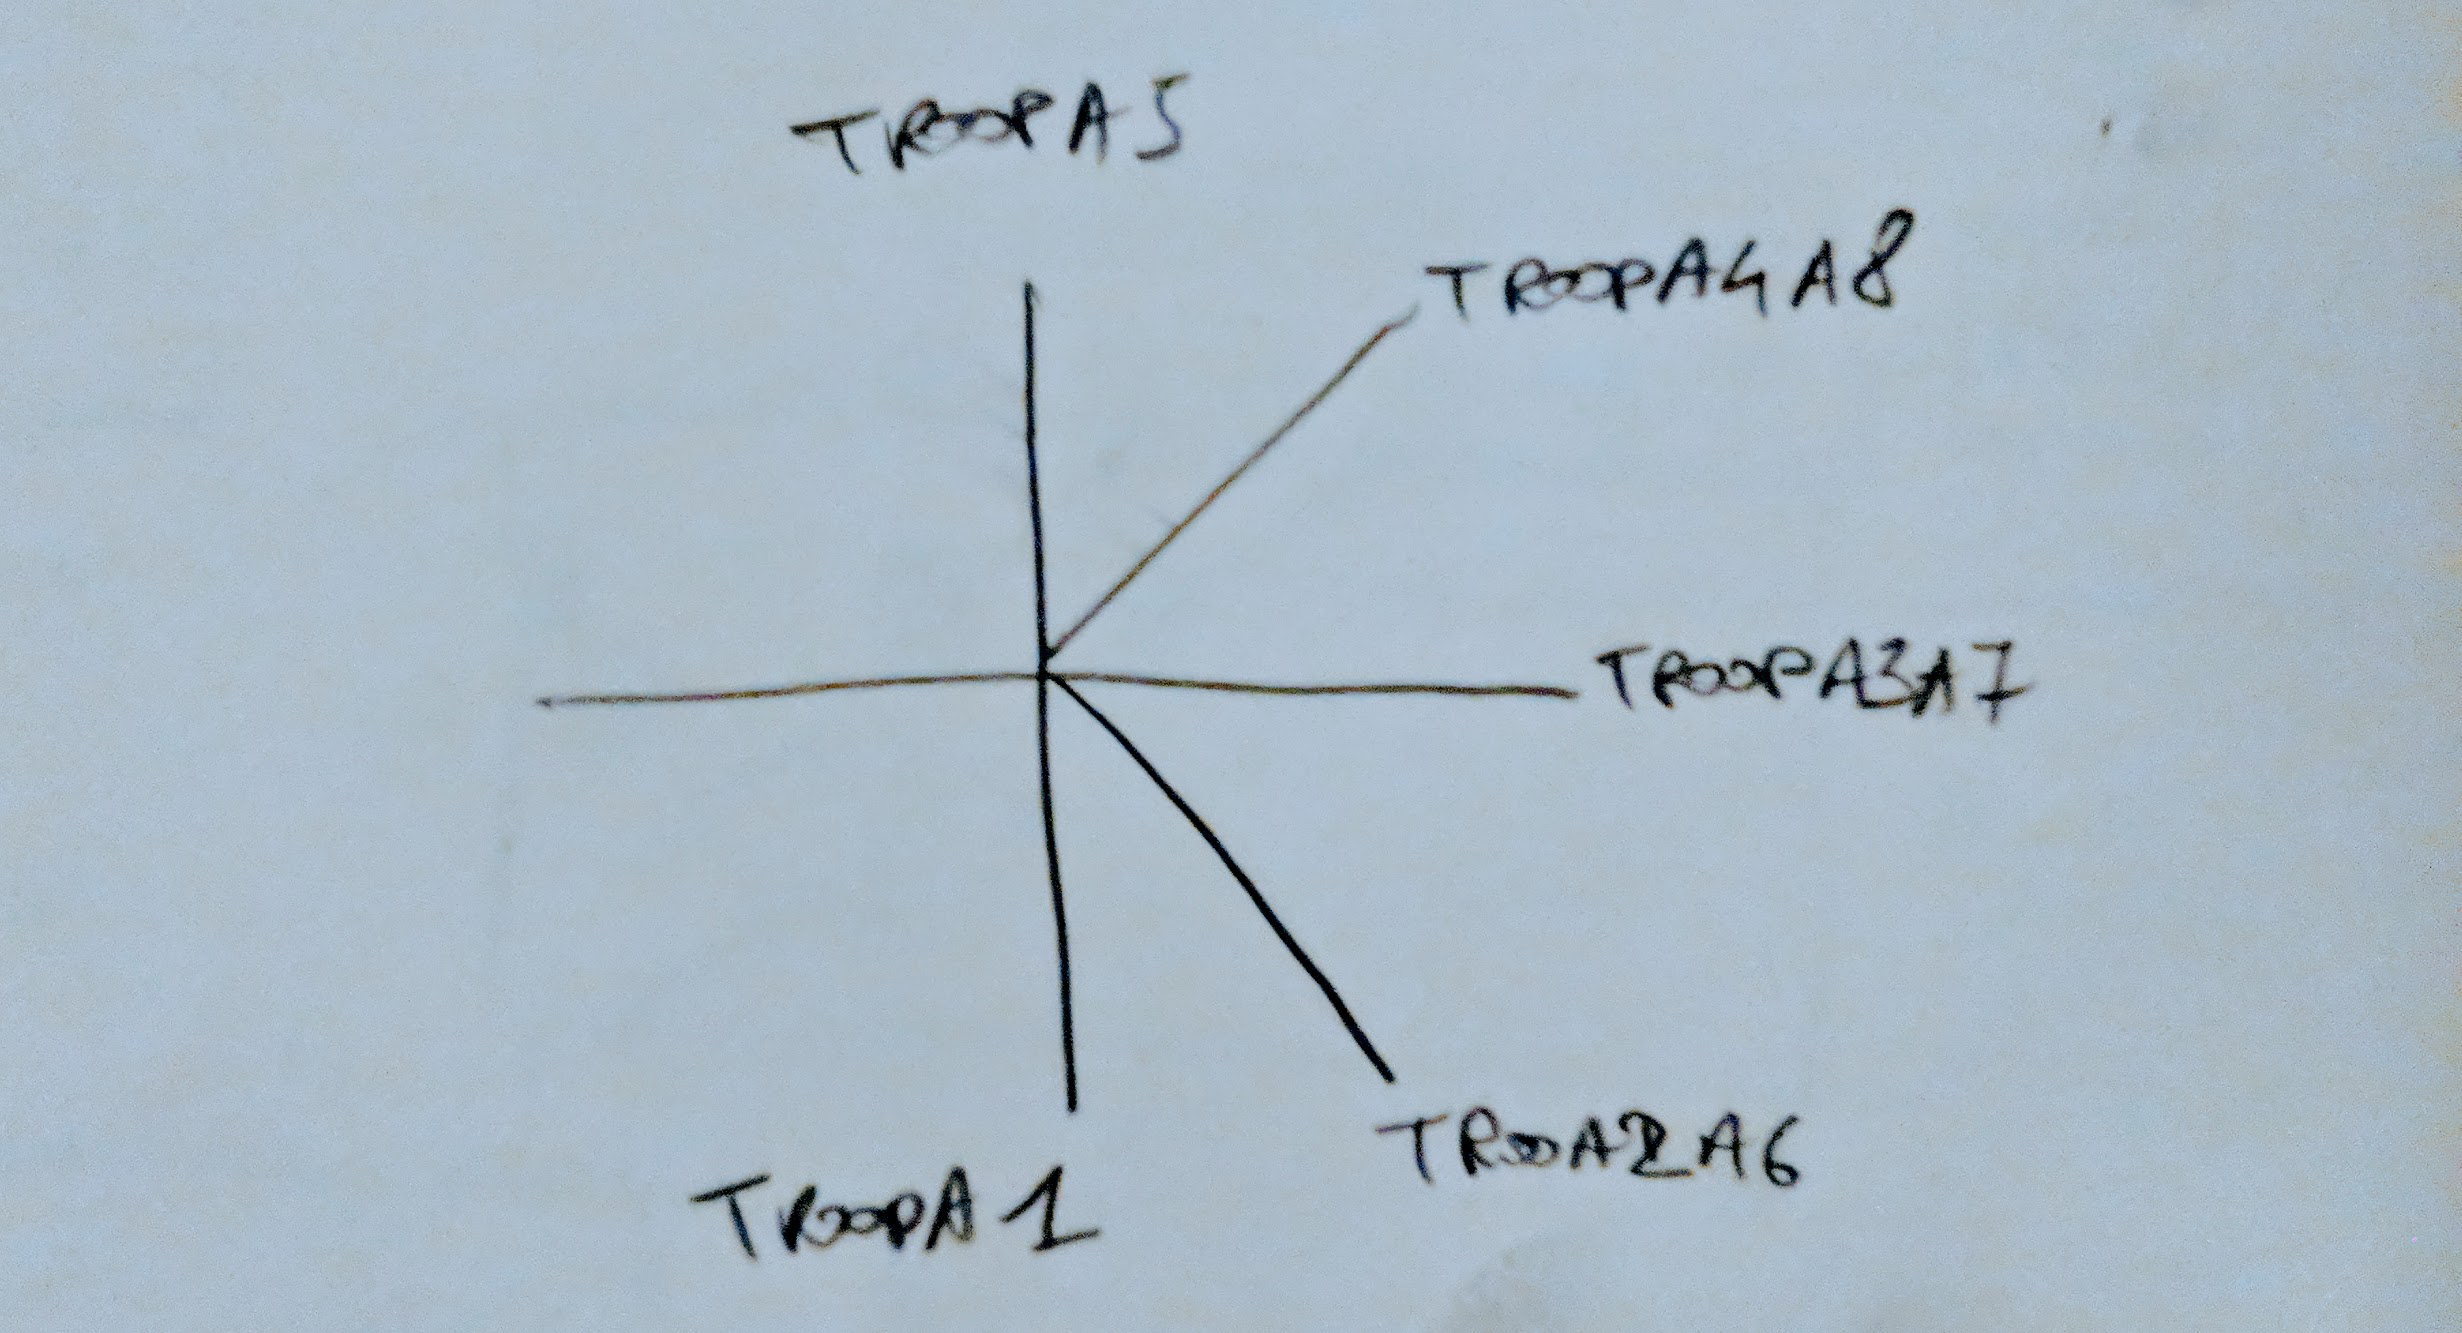 TROOPA5
TROOPA4A8
TROOPA3A7
TROOA2A6
TROOPA1